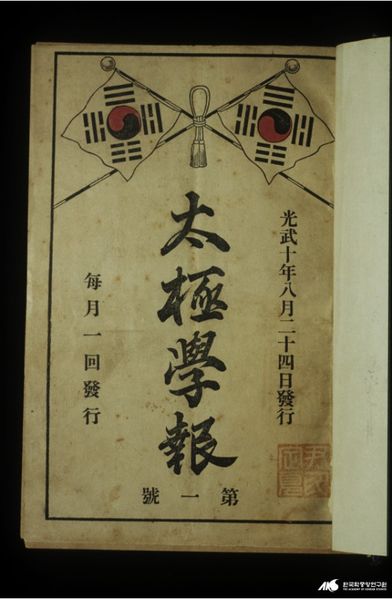 光武十年八月二十四日發行
太極學報
第一號
每月一回發行
한국학중앙연구원
THE ACADEMY OF KOREAN STUDIES